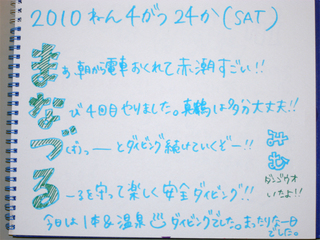 2010 ねん 4がつ 24か (SAT)
まぁ、朝から電車おくれて赤潮すごい!!
なび4回目やりました。真鶴は多分大丈夫!!
づばっ——とダイビング続けていくぞー!!
る—るを守って楽しく安全ダイビング!!
みむ
ダンゴウオ
いたよ!!
今日は1本&温泉♨ダイビングでした。まったりな一日
でした。